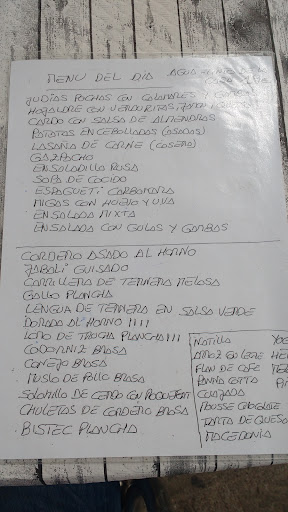 MENU DEL DIA AGUA
JUDIAS POCHAS CON CALAMARES Y GAMBAS
HOJALDRE CON VERDURITAS, JAMON Y QUESO
CARDO CON SALSA DE ALMENDRAS
PATATAS ENCEBOLLADAS (ASADAS)
LASAÑA DE CARNE (CASERA)
GAZPACHO
ENSALADILLA RUSA
SOPA DE COCIDO
ESPAGUETI CARBONARA
MIGAS CON HUEVO Y UVA
ENSALADA MIXTA
ENSALADA CON GULAS Y GAMBAS
CORDERO ASADO AL HORNO
JABALÍ GUISADO
CARRILLERA DE TERNERA MELOSA
GALLO PLANCHA
LENGUA DE TERNERA EN SALSA VERDE
DORADA AL HORNO !!!!
LOMO DE TRUCHA PLANCHA!!!
CODORNIZ BRASA
CONEJO BRASA
MUSLO DE POLLO BRASA
SOLOMILLO DE CERDO CON ROQUEFORT
CHULETAS DE CORDERO BRASA
BISTEC PLANCHA
NATILLA
ARROZ CON LECHE
FLAN DE CAFE
PANNA COTTA
CUAJADA
MOUSSE CHOCOLATE
TARTA DE QUESO
MACEDONIA